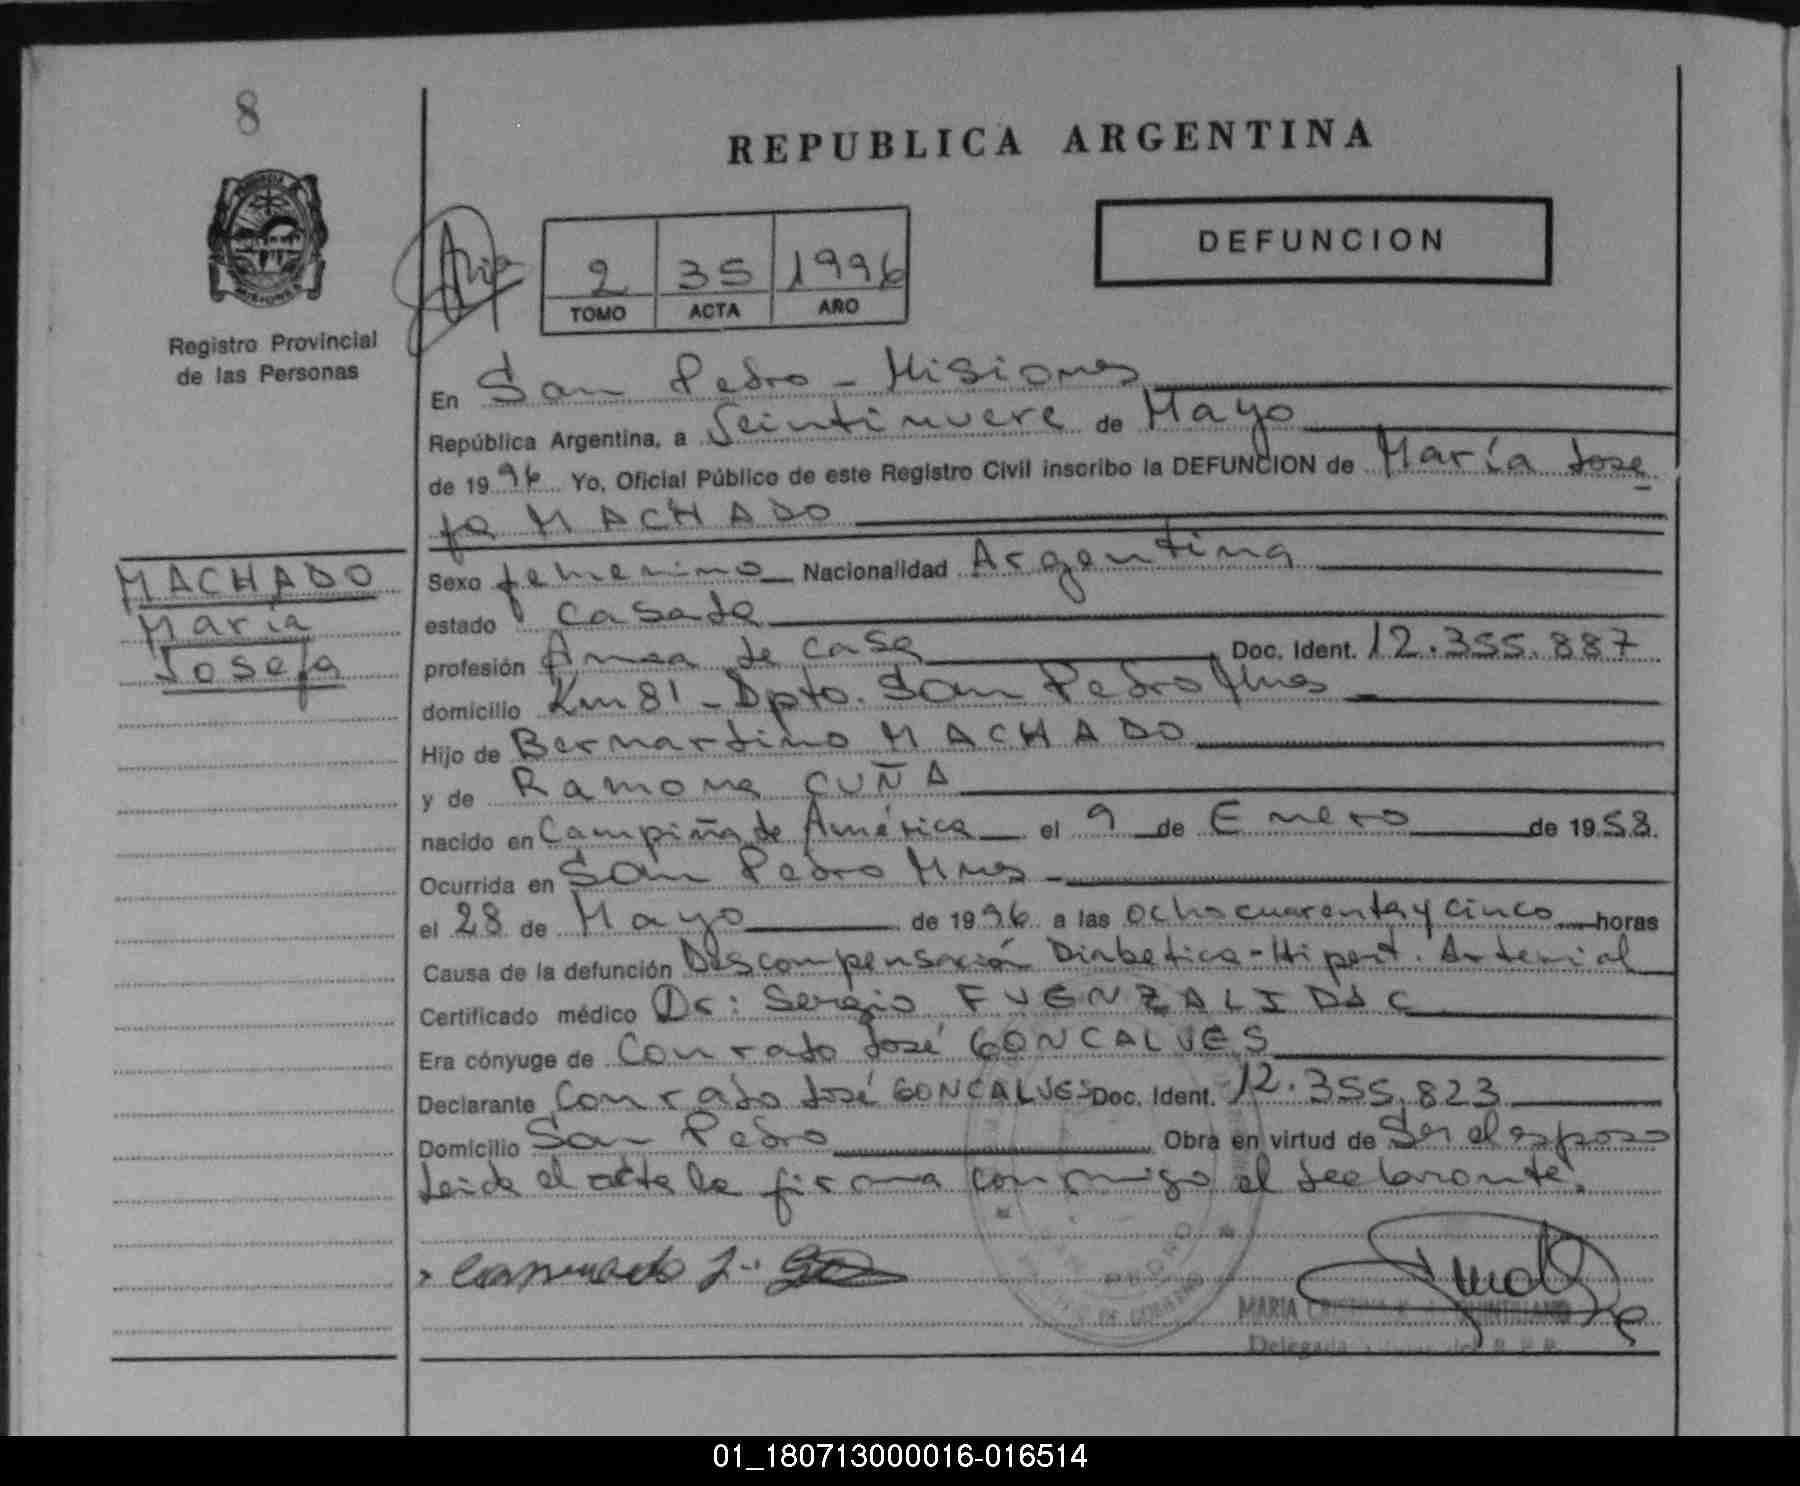 8
REPUBLICA ARGENTINA
DEFUNCION
PROVINCIA DE
MISIONES
Registro Provincial
de las Personas
2 35 1996
TOMO ACTA AÑO
En San Pedro - Misiones
República Argentina, a Veintinueve de Mayo
de 1996 Yo, Oficial Público de este Registro Civil inscribo la DEFUNCION de María Jose
fa MACHADO
MACHADO
María
Josefa
Sexo femenino Nacionalidad Argentina
estado casada
profesión Ama de casa Doc. Ident. 12.355.887
domicilio Km 81 - Dpto. San Pedro Mnes
Hijo de Bernardino MACHADO
y de Ramona CUÑA
nacido en Campiña de América el 9 de Enero de 1958.
Ocurrida en San Pedro Mnes -
el 28 de Mayo de 1996 a las ocho cuarenta y cinco horas
Causa de la defunción Descompensación Diabetica - Hipert. Arterial
Certificado médico Dr: Sergio FUENZALIDA C
Era cónyuge de Conrado José GONCALVES
Declarante Conrado José GONCALVES Doc. Ident. 12.355.823
Domicilio San Pedro Obra en virtud de Ser el esposo
Leida el acta la firma conmigo el declarante.
MARIA CRISTINA
Delegada R. P. P.
01_180713000016-016514